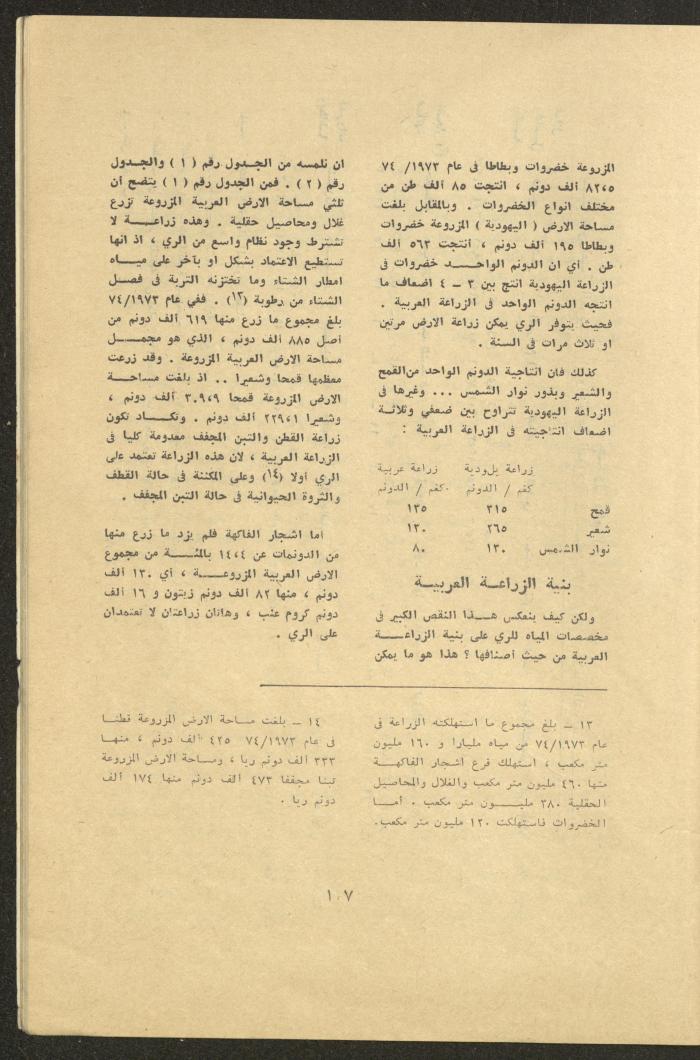 المزروعة خضروات وبطاطا فى عام ١٩٧٣/ ٧٤
٨٢،٥ ألف دونم ، انتجت ٨٥ ألف طن من
مختلف انواع الخضروات . وبالمقابل بلغت
مساحة الارض ( اليهودية ) المزروعة خضروات
وبطاطا ١٩٥ ألف دونم ، أنتجت ٥٦٣ ألف
طن . أي ان الدونم الواحــــد خضروات فى
الزراعة اليهودية انتج بين ٣ – ٤ اضعاف ما
انتجه الدونم الواحد فى الزراعة العربية .
فحيث يتوفر الري يمكن زراعة الارض مرتين
او ثلاث مرات فى السنة .
كذلك فان انتاجية الدونم الواحد من القمح
والشعير وبذور نوار الشمس ... وغيرها فى
الزراعة اليهودية تتراوح بين ضعفي وثلاثــة
اضعاف انتاجيته فى الزراعة العربية :
زراعة يهودية زراعة عربية
كغم / الدونم كغم / الدونم
قمح ٣١٥ ١٣٥
شعير ٢٦٥ ١٣٠
نوار الشمس ١٣٠ ٨٠
بنية الزراعــة العربيــة
ولكن كيف ينعكس هــــذا النقص الكبير فى
مخصصات المياه للري على بنية الزراعــــة
العربية من حيث أصنافها ؟ هذا هو ما يمكن
ان نلمسه من الجــدول رقم ( ١ ) والجــدول
رقم ( ٢ ) . فمن الجدول رقم ( ١ ) يتضح أن
ثلثي مساحة الارض العربية المزروعة تزرع
غلال ومحاصيل حقلية . وهذه زراعــــة لا
تشترط وجود نظام واسع من الري ، اذ انها
تستطيع الاعتماد بشكل او بآخر على ميــــاه
امطار الشتاء وما تختزنه التربة فى فصــل
الشتاء من رطوبة (١٣) . ففي عام ٧٤/١٩٧٣
بلغ مجموع ما زرع منها ٦١٩ ألف دونم من
أصل ٨٨٥ ألف دونم ، الذي هو مجمــــل
مساحة الارض العربية المزروعة . وقد زرعت
معظمها قمحا وشعيرا .. اذ بلغت مساحــــة
الارض المزروعة قمحا ٣٠٩،٩ ألف دونم ،
وشعيرا ٢٢٩،١ ألف دونم . وتكــــاد تكون
زراعة القطن والتبن المجفف معدومة كليا فى
الزراعة العربية ، لان هذه الزراعة تعتمد على
الري أولا (١٤) وعلى المكننة فى حالة القطف
والثروة الحيوانية فى حالة التبن المجفف .
أما اشجار الفاكهة فلم يزد ما زرع منها
من الدونمات عن ١٤،٤ بالمئــــة من مجموع
الارض العربية المزروعــــة ، أي ١٣٠ ألف
دونم ، منها ٨٢ ألف دونم زيتون و ١٦ ألف
دونم كروم عنب ، وهاتان زراعتان لا تعتمدان
على الري .
١٣ – بلغ مجموع ما استهلكته الزراعة فى
عام ٧٤/١٩٧٣ من مياه مليارا و ١٦٠ مليون
متر مكعب ، استهلك فرع اشجار الفاكهــة
منها ٤٦٠ مليون متر مكعب والغلال والمحاصيل
الحقلية ٣٨٠ مليــــون متر مكعب . أمــا
الخضروات فاستهلكت ١٢٠ مليون متر مكعب.
١٤ – بلغت مساحة الارض المزروعة قطنــا
فى عام ٧٤/١٩٧٣ ٤٣٥ ألف دونم ، منهــا
٣٣٣ ألف دونم ريا ، ومساحة الارض المزروعة
تبنا مجففا ٤٧٣ ألف دونم منها ١٧٤ ألف
دونم ريا .
١٠٧